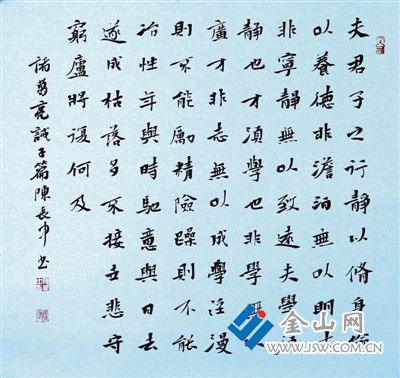 夫君子之行靜以脩身儉
以養德非澹泊無以明
非寧靜無以致遠夫學須
靜也才須學也非學無
廣才非志無以成學淫漫
則不能勵精險躁則不能
冶性年與時馳意與日去
遂成枯落多不接世悲守
窮廬將復何及
諸葛亮誡子篇陳長书
金山网
WWW.JSW.COM.CN